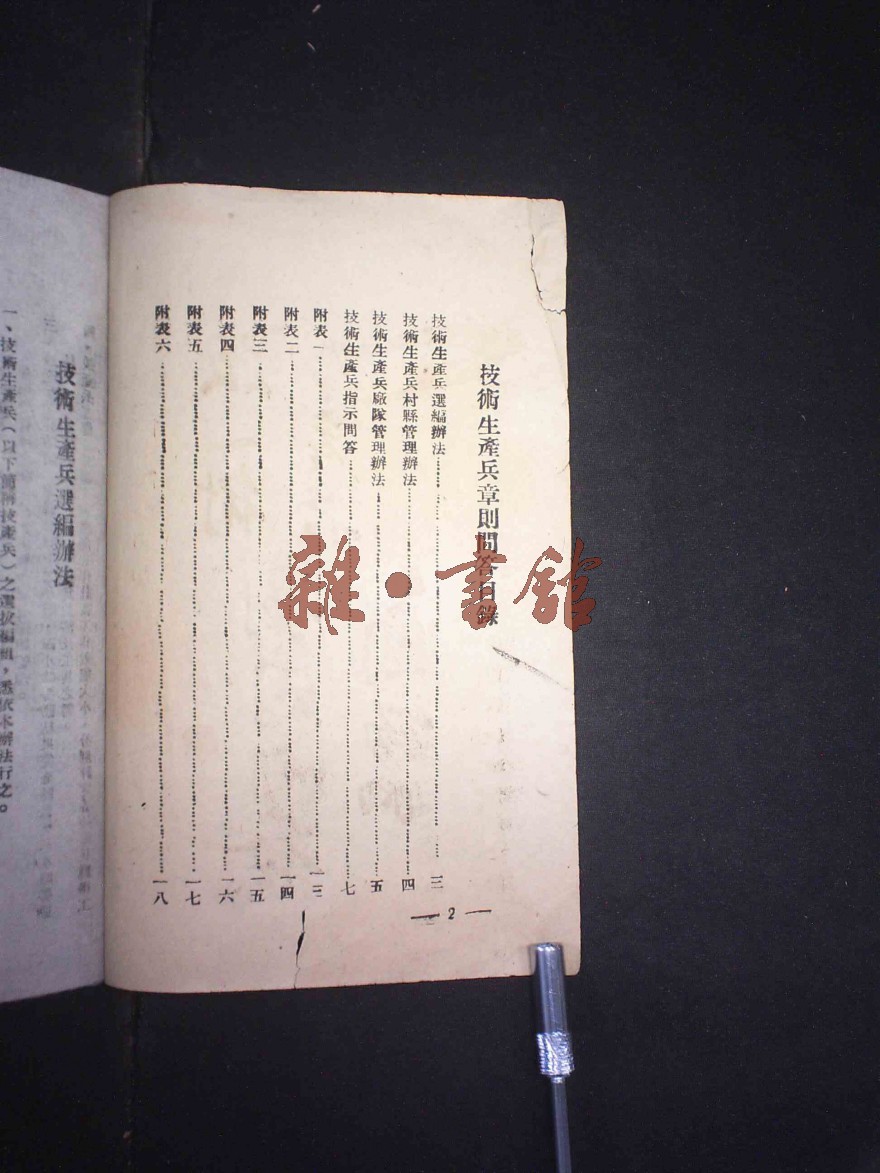 技術生產兵章則問答目錄
技術生產兵選編辦法 三
技術生產兵村縣管理辦法 四
技術生產兵廠隊管理辦法 五
技術生產兵指示問答 七
附表一 一三
附表二 一四
附表三 一五
附表四 一六
附表五 一七
附表六 一八
— 2 —
雜·書館
技術生產兵選編辦法
一、技術生產兵(以下簡稱技產兵)之選拔編組,悉依本辦法行之。